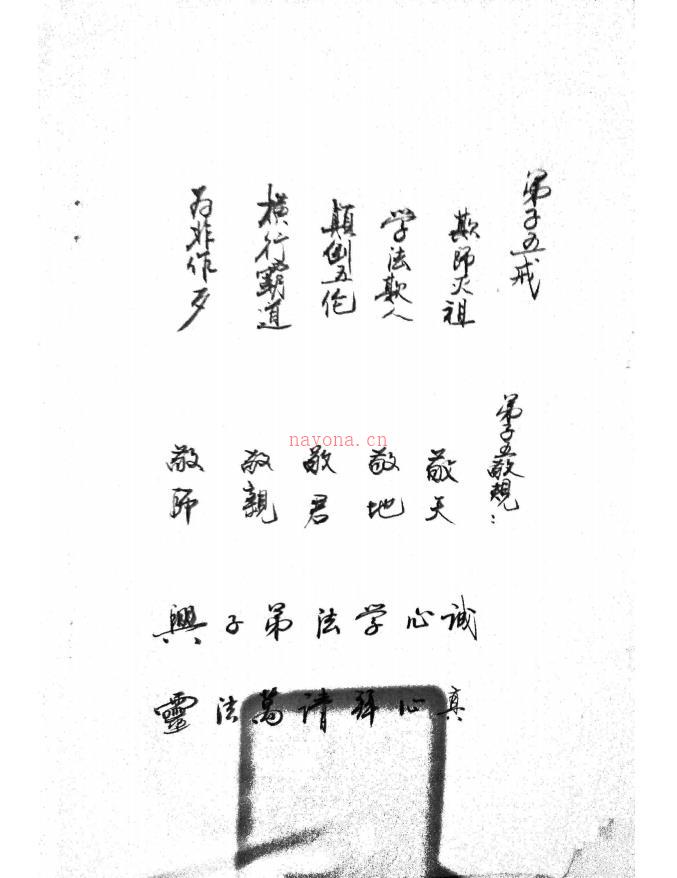 弟子五戒
欺师灭祖
学法欺人
顛倒五伦
橫行霸道
为非作歹
弟子五敬規：
敬天
敬地
敬君
敬親
敬師
誠心学法弟子興
真心拜请萬法靈
nayona.cn